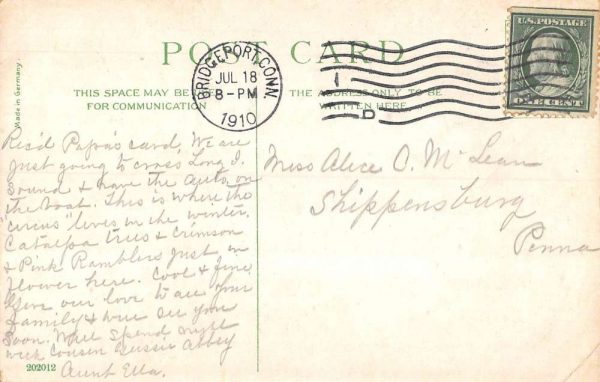 POST CARD
Made in Germany.
THIS SPACE MAY BE
FOR COMMUNICATION
THE ADDRESS ONLY TO BE
WRITTEN HERE.
BRIDGEPORT, CONN.
JUL 18
8-PM
1910
D
U.S. POSTAGE
ONE CENT
Rec'd Papa's card, We are
just going to cross Long I.
Sound & have the auto on
the boat. This is where the
"circus" lives in the winter.
Catalpa trees & Crimson
& Pink Ramblers just in
flower here. Cool & fine
Give our love to all your
family & will see you
soon. Will spend
with Cousin Gussie Abbey
Aunt Ella.
Miss Alice O. McLean
Shippensburg
Penna
202012